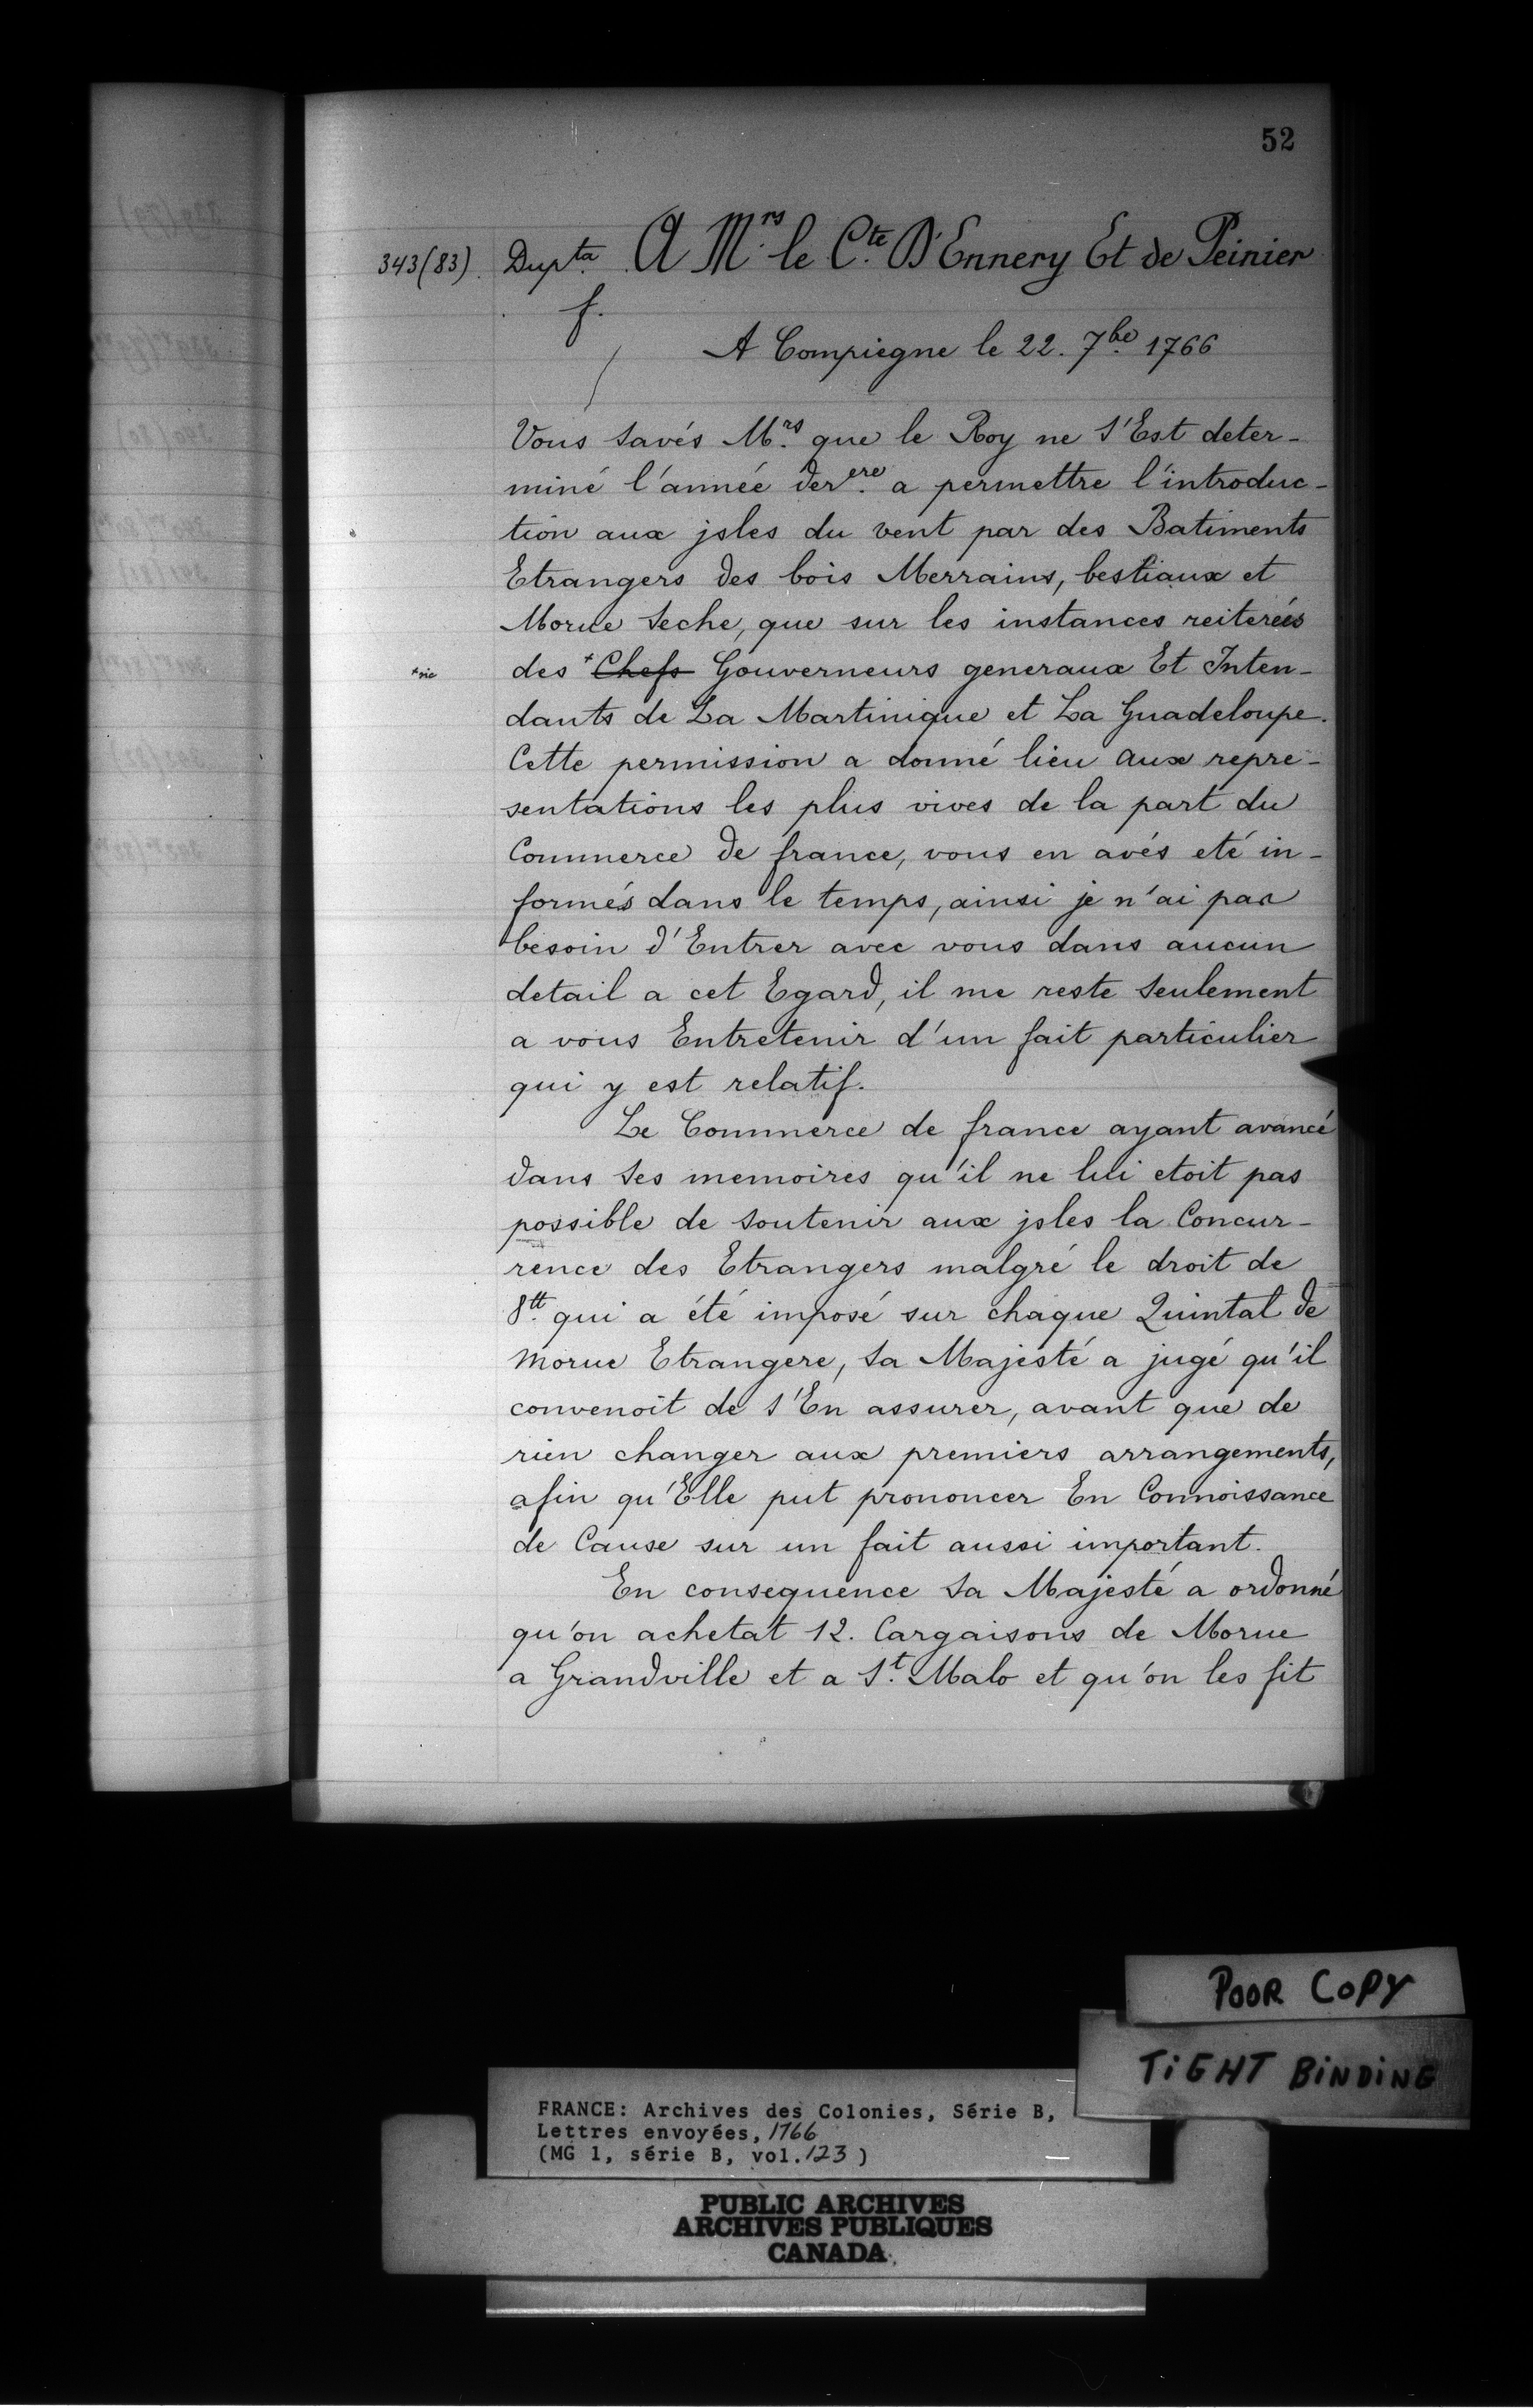 52
343(83). Dupta. A Mrs. le Cte. D'Ennery Et de Peinier
f.
A Compiegne le 22. 7be. 1766
Vous savés Mrs. que le Roy ne s'Est deter-
miné l'année derere. a permettre l'introduc-
tion aux jsles du vent par des Batiments
Etrangers des bois Merrains, bestiaux et
Morue seche, que sur les instances reiterées
*sic des + ~~Chefs~~ Gouverneurs generaux Et Inten-
dants de La Martinique et La Guadeloupe.
Cette permission a donné lieu aux repre-
sentations les plus vives de la part du
Commerce de france, vous en avés eté in-
formés dans le temps, ainsi je n'ai pas
besoin d'Entrer avec vous dans aucun
detail a cet Egard, il me reste seulement
a vous Entretenir d'un fait particulier
qui y est relatif.
Le Commerce de france ayant avancé
dans ses memoires qu'il ne lui etoit pas
possible de soutenir aux jsles la Concur-
rence des Etrangers malgré le droit de
8tt. qui a été imposé sur chaque Quintal de
morue Etrangere, sa Majesté a jugé qu'il
convenoit de s'En assurer, avant que de
rien changer aux premiers arrangements,
afin qu'Elle put prononcer En Connoissance
de Cause sur un fait aussi important.
En consequence sa Majesté a ordonné
qu'on achetat 12. Cargaisons de Morue
a Grandville et a St. Malo et qu'on les fit
POOR COPY
TIGHT BINDING
FRANCE: Archives des Colonies, Série B,
Lettres envoyées, 1766
(MG 1, série B, vol. 123 )
PUBLIC ARCHIVES
ARCHIVES PUBLIQUES
CANADA